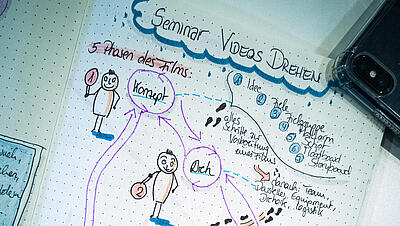 Seminar Videos Drehen
5 Phasen des Films:
1
Konzept
alles
Schritte zur
Vorbereitung
eines Films
1 Idee
2 Ziele
3 Zielgruppe
4
5
6
7 Storyboard
Dreh
2
Danach: Team,
Darsteller, Equipment,
Drehorte, Logistik